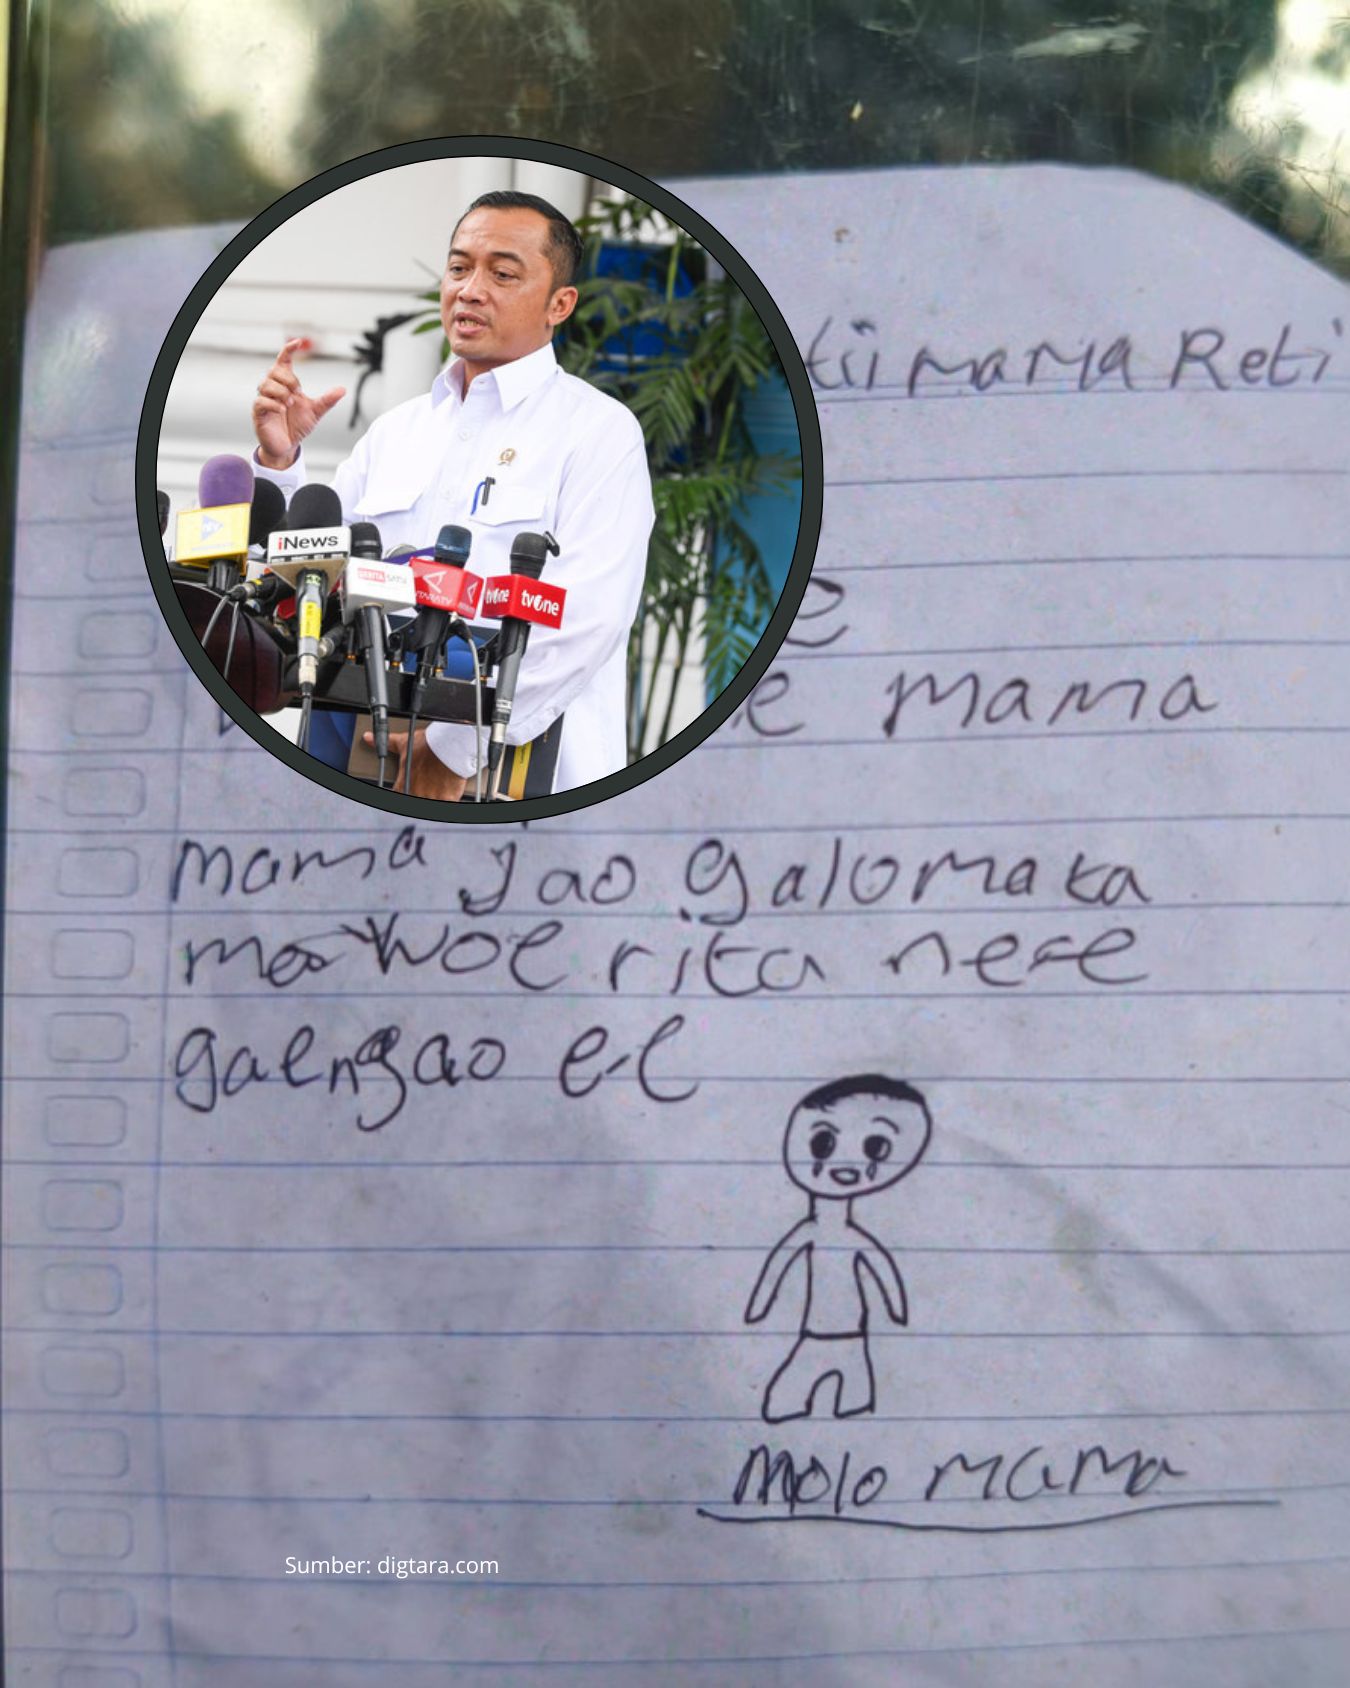 tii mama Reti
e
e mama
mama jao galo mata
mae woe rita ne'e
gaengao ee
molo mama
iNews
BERITA SATU
ANTARATV
tvOne
tvOne
Sumber: digtara.com